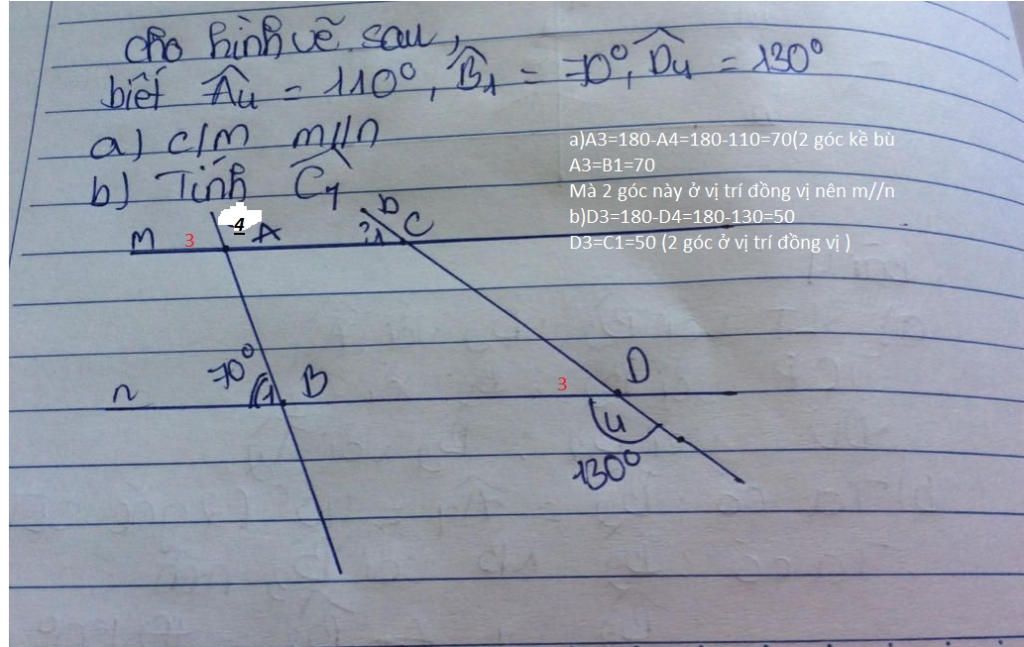 cho hình vẽ sau,
biết Â4 = 110°, B̂1 = 70°, D̂4 = 130°
a) c/m m//n
b) Tính Ĉ1
a)A3=180-A4=180-110=70(2 góc kề bù
A3=B1=70
Mà 2 góc này ở vị trí đồng vị nên m//n
b)D3=180-D4=180-130=50
D3=C1=50 (2 góc ở vị trí đồng vị )
M 3 4 A ? 1 D C
70°
n 1 B 3 D
4
130°